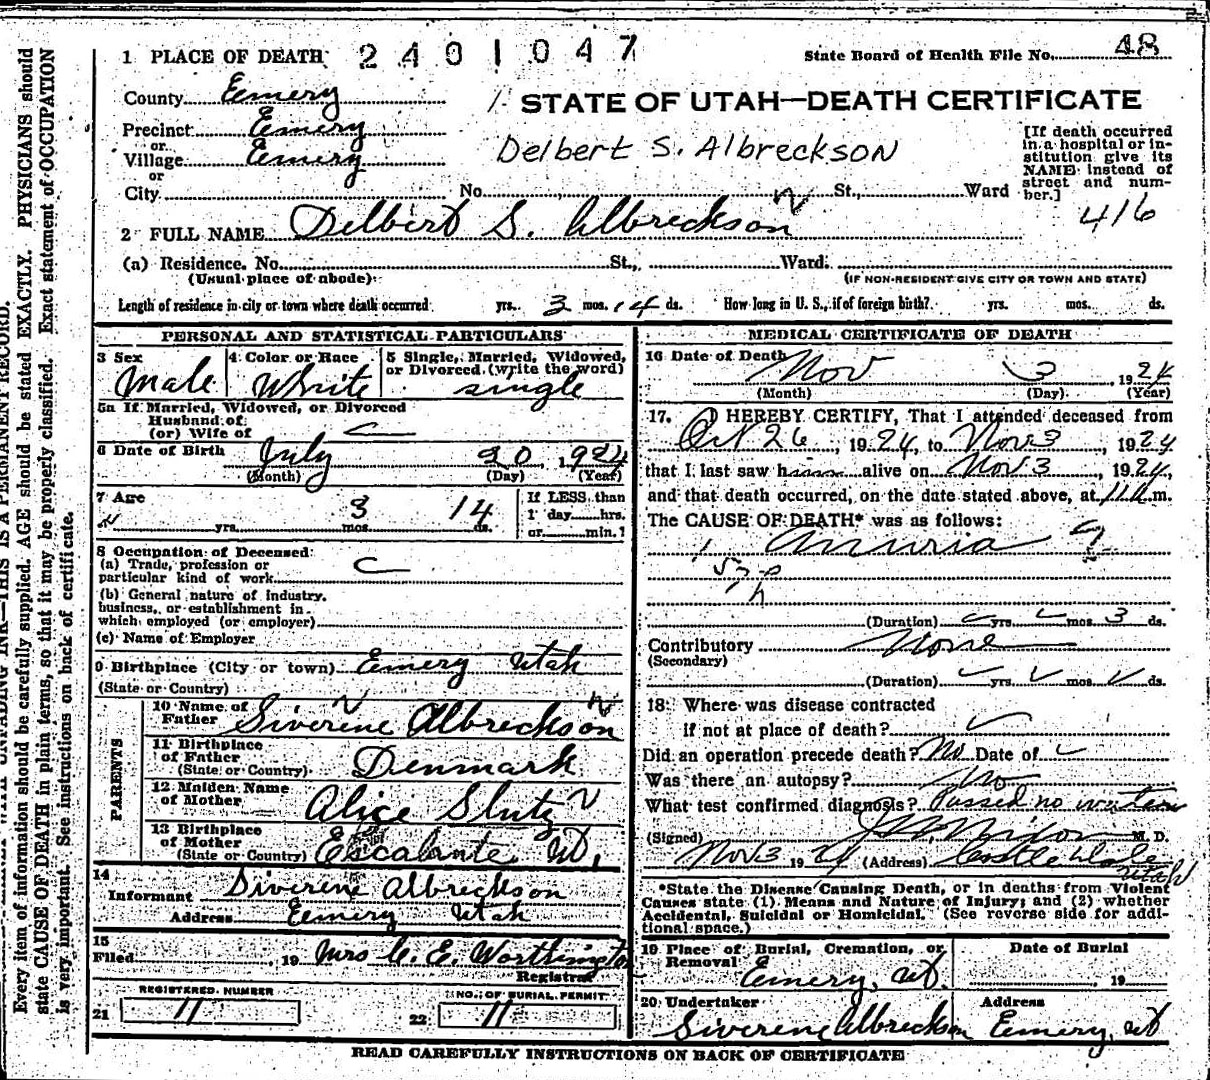 1 PLACE OF DEATH 2401047 State Board of Health File No. 48
County Emery
STATE OF UTAH—DEATH CERTIFICATE
Precinct Emery
or
Village Emery
Delbert S. Albreckson
[If death occurred in a hospital or institution give its NAME instead of street and number.]
or
City No. St., Ward
416
2 FULL NAME Delbert S. Albreckson
(a) Residence. No. St., Ward.
(Usual place of abode) (IF NON-RESIDENT GIVE CITY OR TOWN AND STATE)
Length of residence in city or town where death occurred yrs. 3 mos. 14 ds. How long in U. S., if of foreign birth? yrs. mos. ds.
PERSONAL AND STATISTICAL PARTICULARS
3 Sex Male
4 Color or Race White
5 Single, Married, Widowed, or Divorced (write the word) single
5a If Married, Widowed, or Divorced
Husband of
(or) Wife of
6 Date of Birth July 20, 1924
(Month) (Day) (Year)
7 Age yrs. 3 mos. 14 ds.
If LESS than
1 day hrs.
or min.?
8 Occupation of Deceased:
(a) Trade, profession or
particular kind of work
(b) General nature of industry,
business, or establishment in
which employed (or employer)
(c) Name of Employer
9 Birthplace (City or town) Emery Utah
(State or Country)
PARENTS
10 Name of Father Siverene Albreckson
11 Birthplace of Father (State or Country) Denmark
12 Maiden Name of Mother Alice Shutz
13 Birthplace of Mother (State or Country) Escalante Ut.
14
Informant Siverene Albreckson
Address Emery Utah
15
Filed , 19 Mrs C. E. Worthington
Registrar
REGISTERED NUMBER
21 11
NO. OF BURIAL PERMIT
22 11
MEDICAL CERTIFICATE OF DEATH
16 Date of Death Nov 3, 1924
(Month) (Day) (Year)
17. I HEREBY CERTIFY, That I attended deceased from
Oct 26, 1924, to Nov 3 1924
that I last saw him alive on Nov 3, 1924,
and that death occurred, on the date stated above, at 11 a.m.
The CAUSE OF DEATH* was as follows:
Annuria
(Duration) yrs. mos. 3 ds.
Contributory None
(Secondary)
(Duration) yrs. mos. ds.
18 Where was disease contracted
if not at place of death?
Did an operation precede death? No Date of
Was there an autopsy? No
What test confirmed diagnosis? Passed no water
(Signed) M. D.
Nov 3 1924 (Address) Castle Dale Utah
*State the Disease Causing Death, or in deaths from Violent
Causes state (1) Means and Nature of Injury; and (2) whether
Accidental, Suicidal or Homicidal. (See reverse side for additional space.)
19 Place of Burial, Cremation, or Removal Emery, Ut.
Date of Burial
, 19
20 Undertaker Siverene Albreckson
Address Emery, Ut
READ CAREFULLY INSTRUCTIONS ON BACK OF CERTIFICATE
Every item of information should be carefully supplied. AGE should be stated EXACTLY. PHYSICIANS should
state CAUSE OF DEATH in plain terms, so that it may be properly classified. Exact statement of OCCUPATION
is very important. See instructions on back of certificate.
UNFADING INK—THIS IS A PERMANENT RECORD.